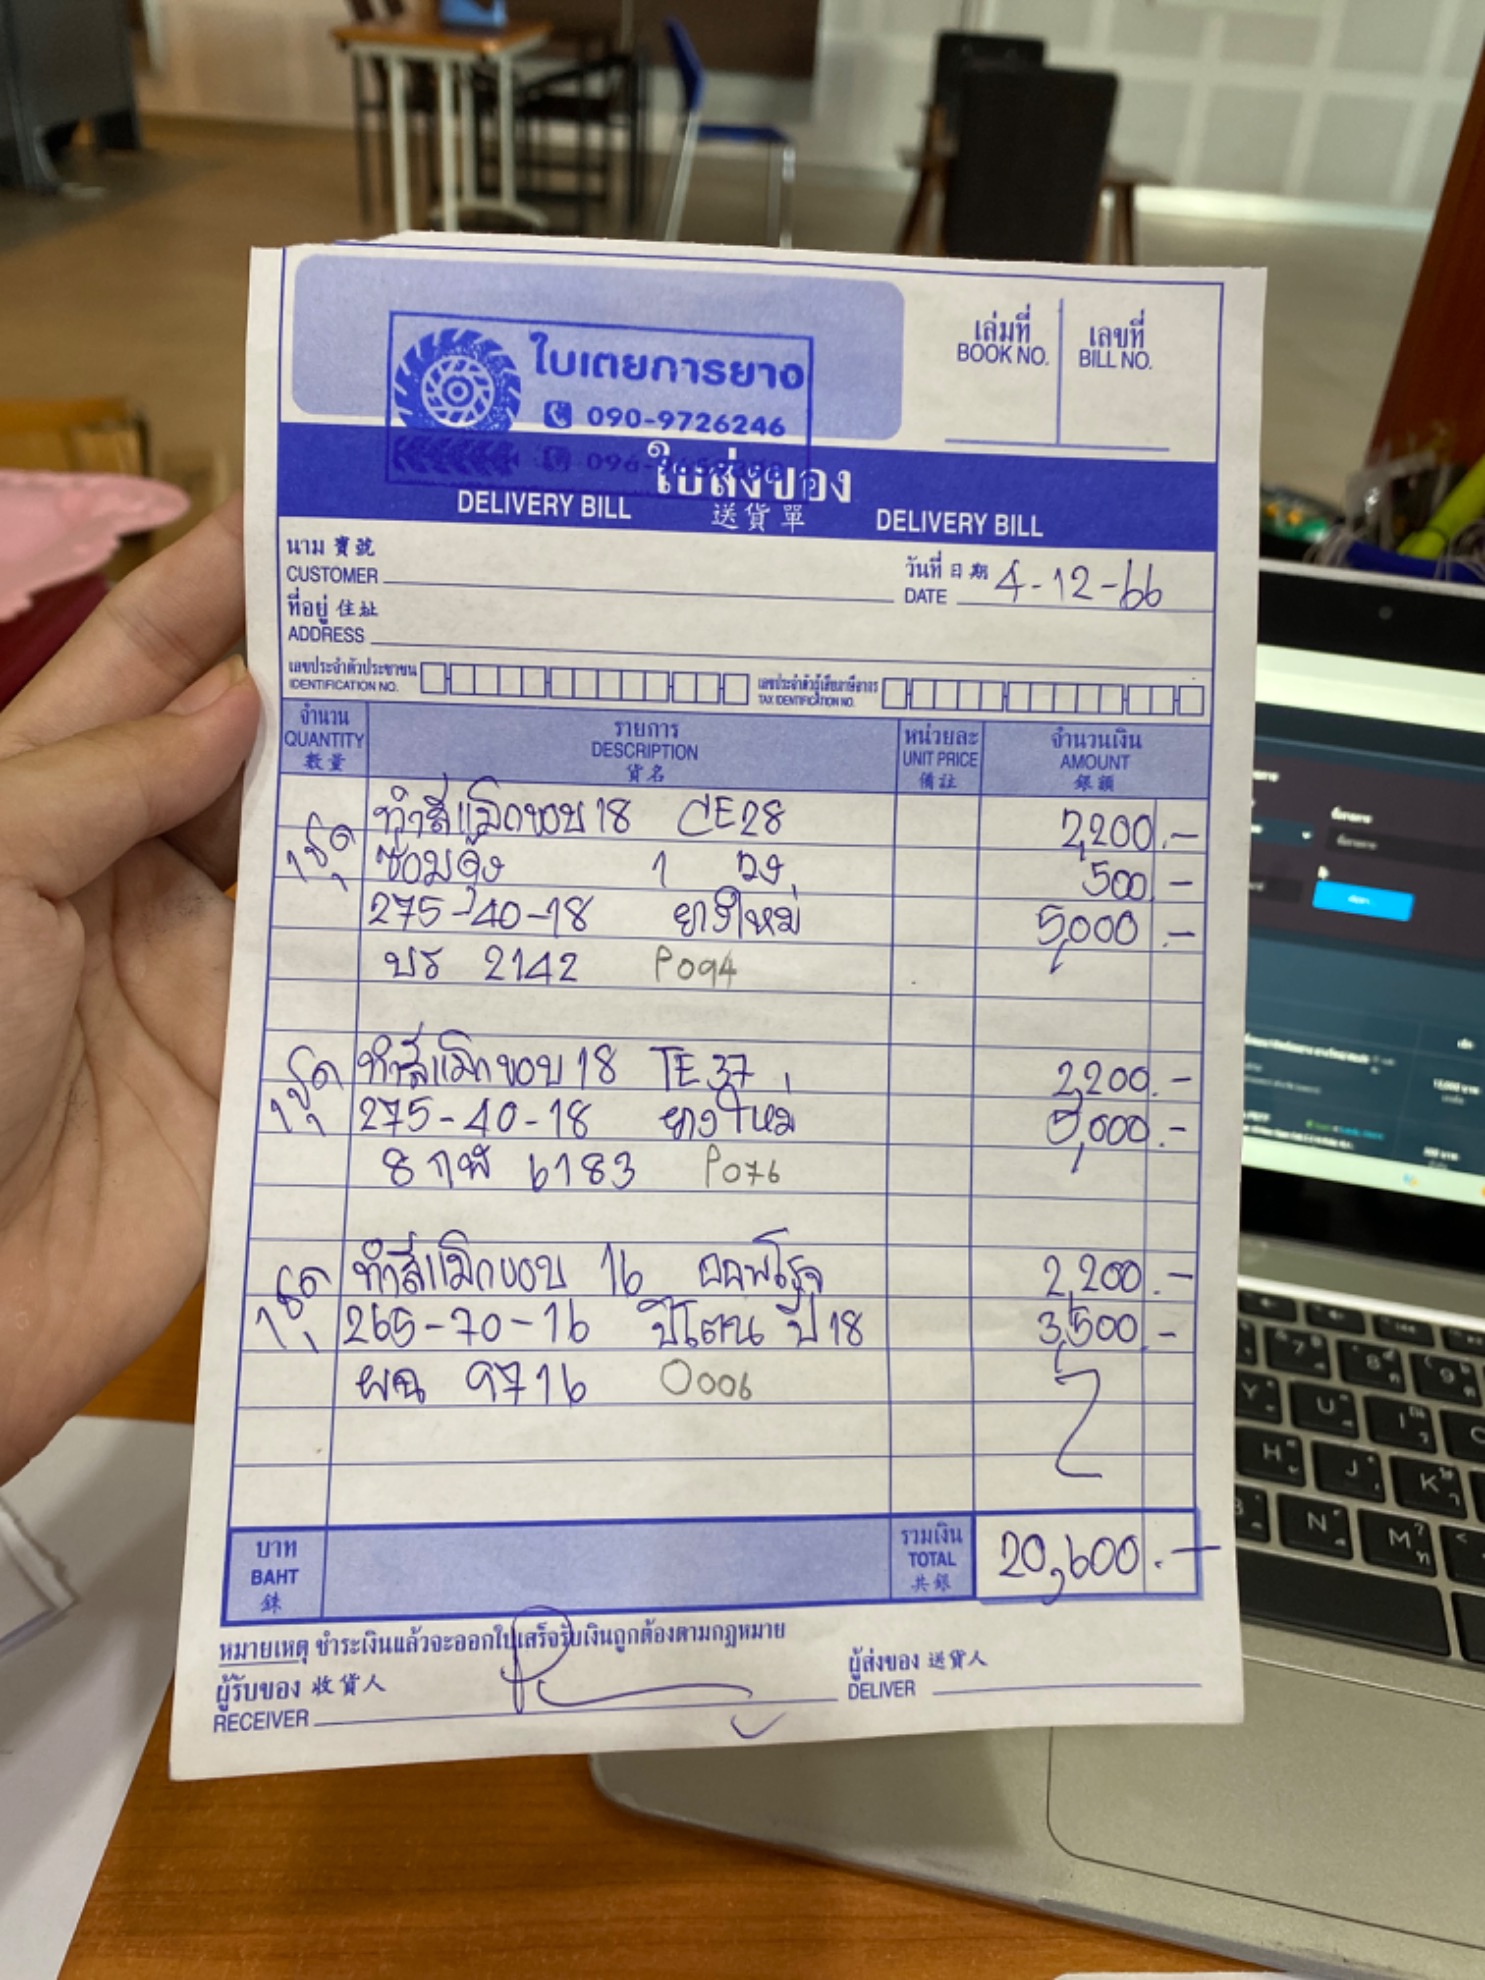 ใบเตยการยาง
090-9726246
เล่มที่ เลขที่
BOOK NO. BILL NO.
ใบส่งของ
DELIVERY BILL 送貨單 DELIVERY BILL
นาม 寶號
CUSTOMER
วันที่ 日期 4-12-66
DATE
ที่อยู่ 住址
ADDRESS
เลขประจำตัวประชาชน เลขประจำตัวผู้เสียภาษีอากร
IDENTIFICATION NO. TAX IDENTIFICATION NO.
จำนวน รายการ หน่วยละ จำนวนเงิน
QUANTITY DESCRIPTION UNIT PRICE AMOUNT
數量 貨名 備註 銀額
ทำสีแม็กขอบ 18 CE28 2,200.-
1 ชุด ซ่อมดุ้ง 1 วง. 500.-
275-40-18 ยางใหม่ 5,000.-
บร 2142 P094
ทำสีแม็กขอบ 18 TE37 2,200.-
1 ชุด 275-40-18 ยางใหม่ 5,000.-
8 กฬ 6183 P076
ทำสีแม็กขอบ 16 2,200.-
1 ชุด 265-70-16 ปี 18 3,500.-
ผฉ 9716 O006
บาท รวมเงิน
BAHT TOTAL 20,600.-
銖 共銀
หมายเหตุ ชำระเงินแล้วจะออกใบเสร็จรับเงินถูกต้องตามกฎหมาย
ผู้รับของ 收貨人 ผู้ส่งของ 送貨人
RECEIVER DELIVER